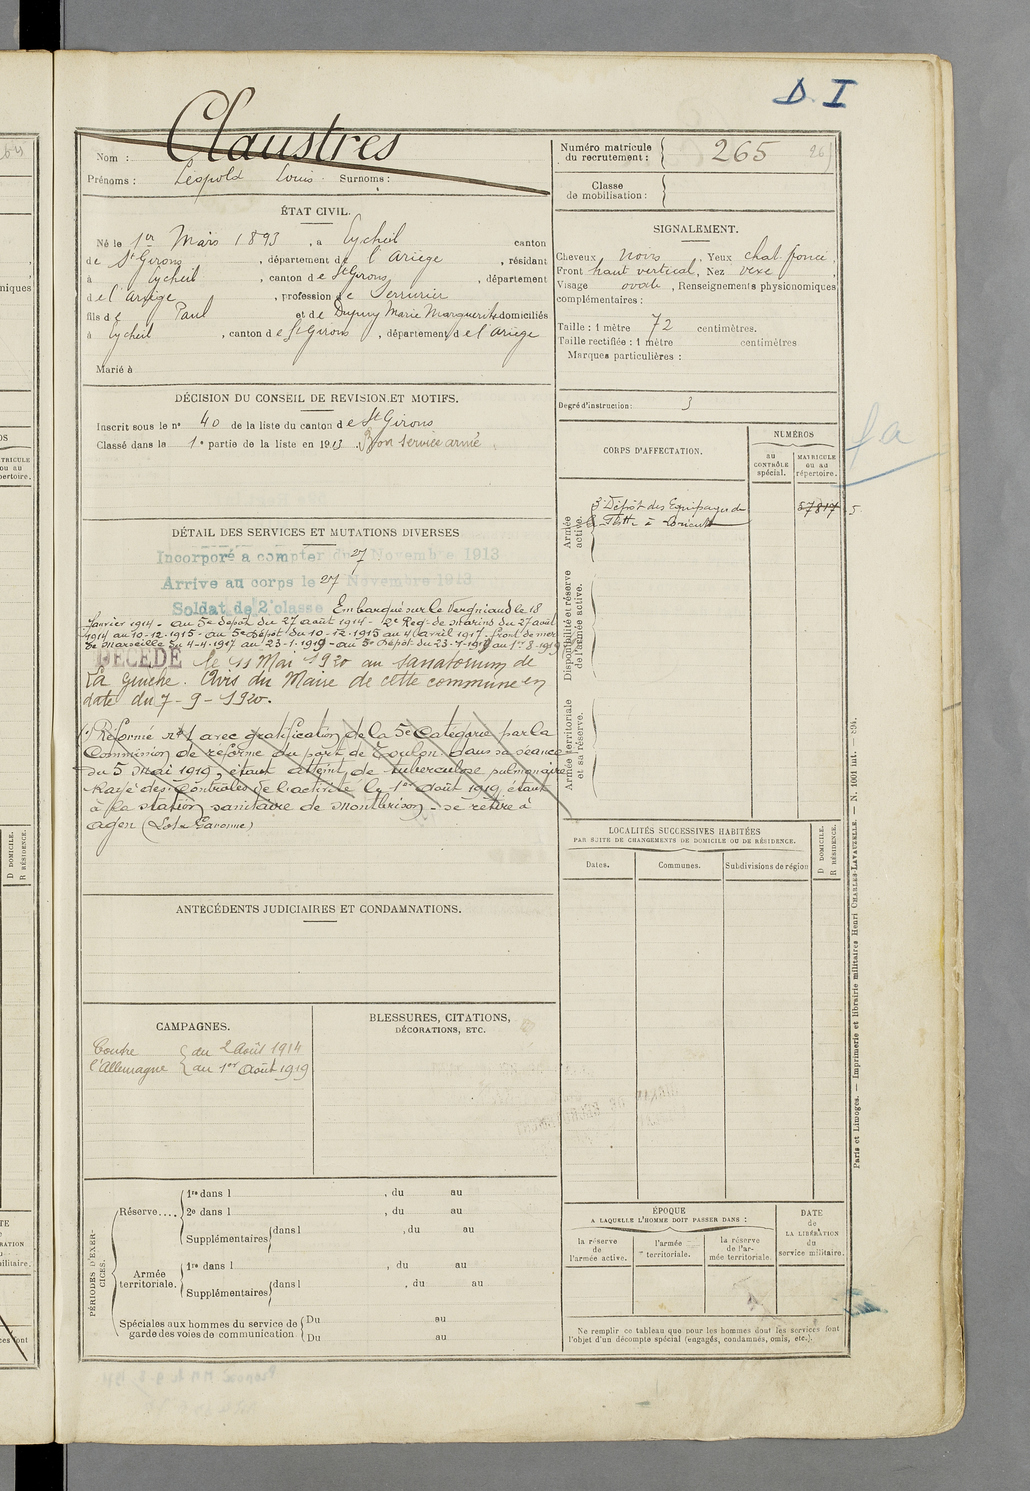 D. I
Nom : Claustres
Prénoms : Léopold Louis Surnoms :
Numéro matricule du recrutement : 265
Classe de mobilisation :
ÉTAT CIVIL.
Né le 1er Mars 1893, à Eycheil canton
de St Girons, département de l'Ariège, résidant
à Eycheil, canton de St Girons, département
de l'Ariège, profession de Serrurier
fils de Paul et de Dupuy Marie Marguerite domiciliés
à Eycheil, canton de St Girons, département de l'Ariège
Marié à
SIGNALEMENT.
Cheveux noirs, Yeux chat. foncé,
Front haut vertical, Nez vexe,
Visage ovale, Renseignements physionomiques
complémentaires :
Taille : 1 mètre 72 centimètres.
Taille rectifiée : 1 mètre centimètres
Marques particulières :
Degré d'instruction : 3
DÉCISION DU CONSEIL DE REVISION ET MOTIFS.
Inscrit sous le n° 40 de la liste du canton de St Girons
Classé dans le 1e partie de la liste en 1913. Bon service armé.
CORPS D'AFFECTATION.
NUMÉROS
AU CONTRÔLE spécial.
MATRICULE OU AU répertoire.
Armée active.
5e Dépôt des Equipages de
la Flotte à
57817 5
Disponibilité et réserve de l'armée active.
Armée territoriale et sa réserve.
DÉTAIL DES SERVICES ET MUTATIONS DIVERSES
Incorporé à compter du 27 Novembre 1913
Arrivé au corps le 27 Novembre 1913
Soldat de 2e classe Embarqué sur le Vergniaud le 18
Janvier 1914 - au 5e dépôt du 27 août 1914 - 2e Reg. de Marins du 27 août
1914 au 10-12-1915 - au 5e dépôt du 10-12-1915 au 4 avril 1917 - front de mer
de Marseille du 4-4-1917 au 23-1-1919 - au 5e dépôt du 23-1-1919 au 1er 8-1919
DÉCÉDÉ le 11 Mai 1920 au sanatorium de
La Guiche. Avis du Maire de cette commune en
date du 7-9-1920.
Réformé n° 1 avec gratification de la 5e Catégorie par la
Commission de réforme du port de Toulon dans sa séance
du 5 Mai 1919, étant atteint de tuberculose pulmonaire
Rayé des Contrôles de l'activité le 1er août 1919 étant
à la station sanitaire de Montbrison - se retire à
Agen (Lot & Garonne)
LOCALITÉS SUCCESSIVES HABITÉES
PAR SUITE DE CHANGEMENTS DE DOMICILE OU DE RÉSIDENCE.
Dates. Communes. Subdivisions de région
D DOMICILE.
R RÉSIDENCE.
ANTÉCÉDENTS JUDICIAIRES ET CONDAMNATIONS.
CAMPAGNES.
Contre l'Allemagne
du 2 Août 1914
au 1er Août 1919
BLESSURES, CITATIONS,
DÉCORATIONS, ETC.
PÉRIODES D'EXERCICES.
Réserve....
1re dans l , du au
2e dans l , du au
Supplémentaires dans l , du au
Armée territoriale.
1re dans l , du au
Supplémentaires dans l , du au
Spéciales aux hommes du service de garde des voies de communication
Du au
Du au
ÉPOQUE
A LAQUELLE L'HOMME DOIT PASSER DANS :
la réserve de l'armée active.
l'armée territoriale.
la réserve de l'armée territoriale
DATE de LA LIBÉRATION du service militaire.
Ne remplir ce tableau que pour les hommes dont les services font
l'objet d'un décompte spécial (engagés, condamnés, omis, etc.).
Paris et Limoges. — Imprimerie et librairie militaires Henri CHARLES-LAVAUZELLE. — N. 1001 int. — 894.